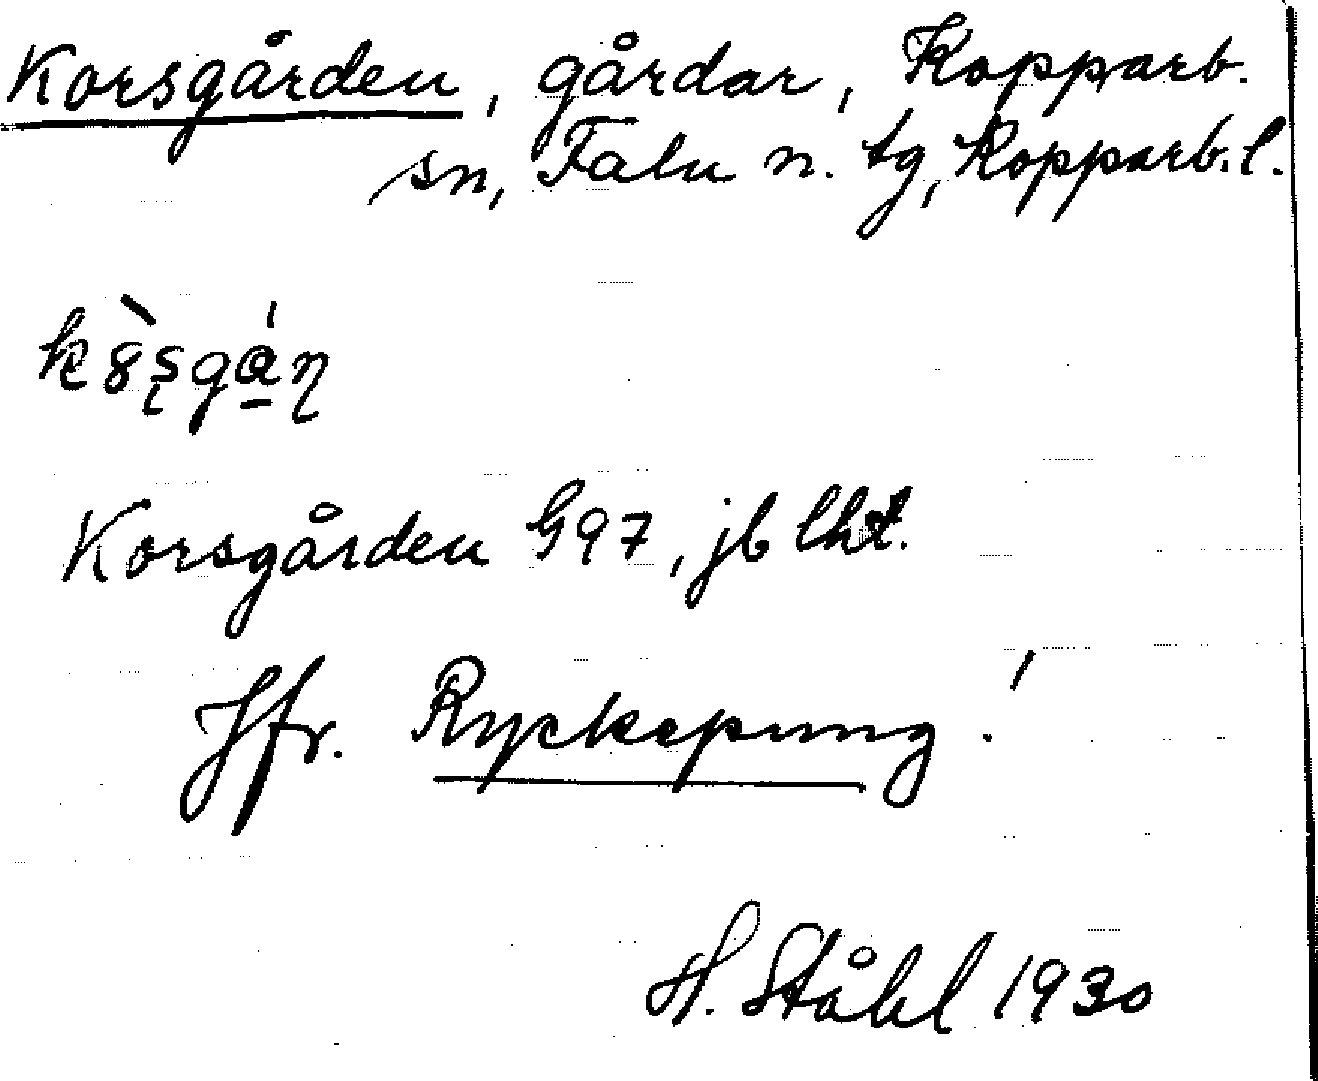 Korsgården, gårdar, Kopparb.
sn, Falu n. tg, Kopparb. l.
Korsgården G97, jb lht.
Jfr. Ryckepung!
H. Ståhl 1930